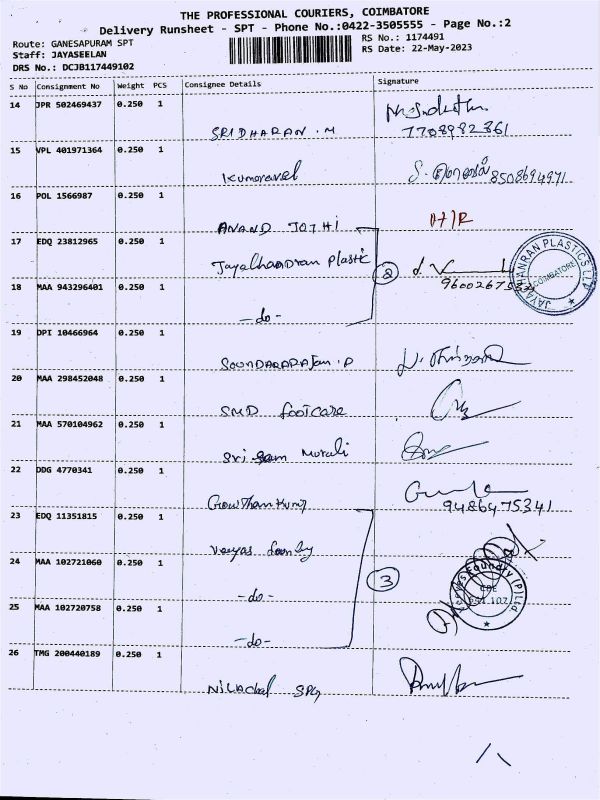 THE PROFESSIONAL COURIERS, COIMBATORE
Delivery Runsheet - SPT - Phone No.:0422-3505555 - Page No.:2
Route: GANESAPURAM SPT
Staff: JAYASEELAN
DRS No.: DCJB117449102
RS No.: 1174491
RS Date: 22-May-2023
S No Consignment No Weight PCS Consignee Details Signature
14 JPR 502469437 0.250 1
SRIDHARAN.M 7708982861
15 VPL 401971364 0.250 1
Kumaravel 8508694971
16 POL 1566987 0.250 1
ANAND JOTHI
17 EDQ 23812965 0.250 1
Plastic
2
JAYACHANRAN PLASTICS
COIMBATORE
18 MAA 943296401 0.250 1
-do-
19 DPI 10466964 0.250 1
20 MAA 298452048 0.250 1
SMD footcare
21 MAA 570104962 0.250 1
Sri Murali
22 DDG 4770341 0.250 1
9486475341
23 EDQ 11351815 0.250 1
24 MAA 102721060 0.250 1
3
Foundry (P) Ltd
-do-
25 MAA 102720758 0.250 1
-do-
26 TMG 200440189 0.250 1